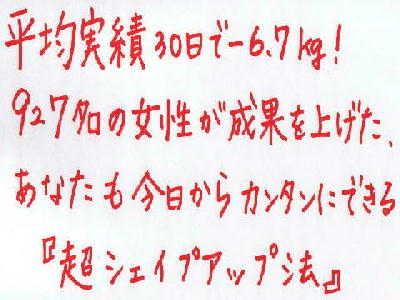 平均実績30日で-6.7kg!
927名の女性が成果を上げた、
あなたも今日からカンタンにできる
『超シェイプアップ法』